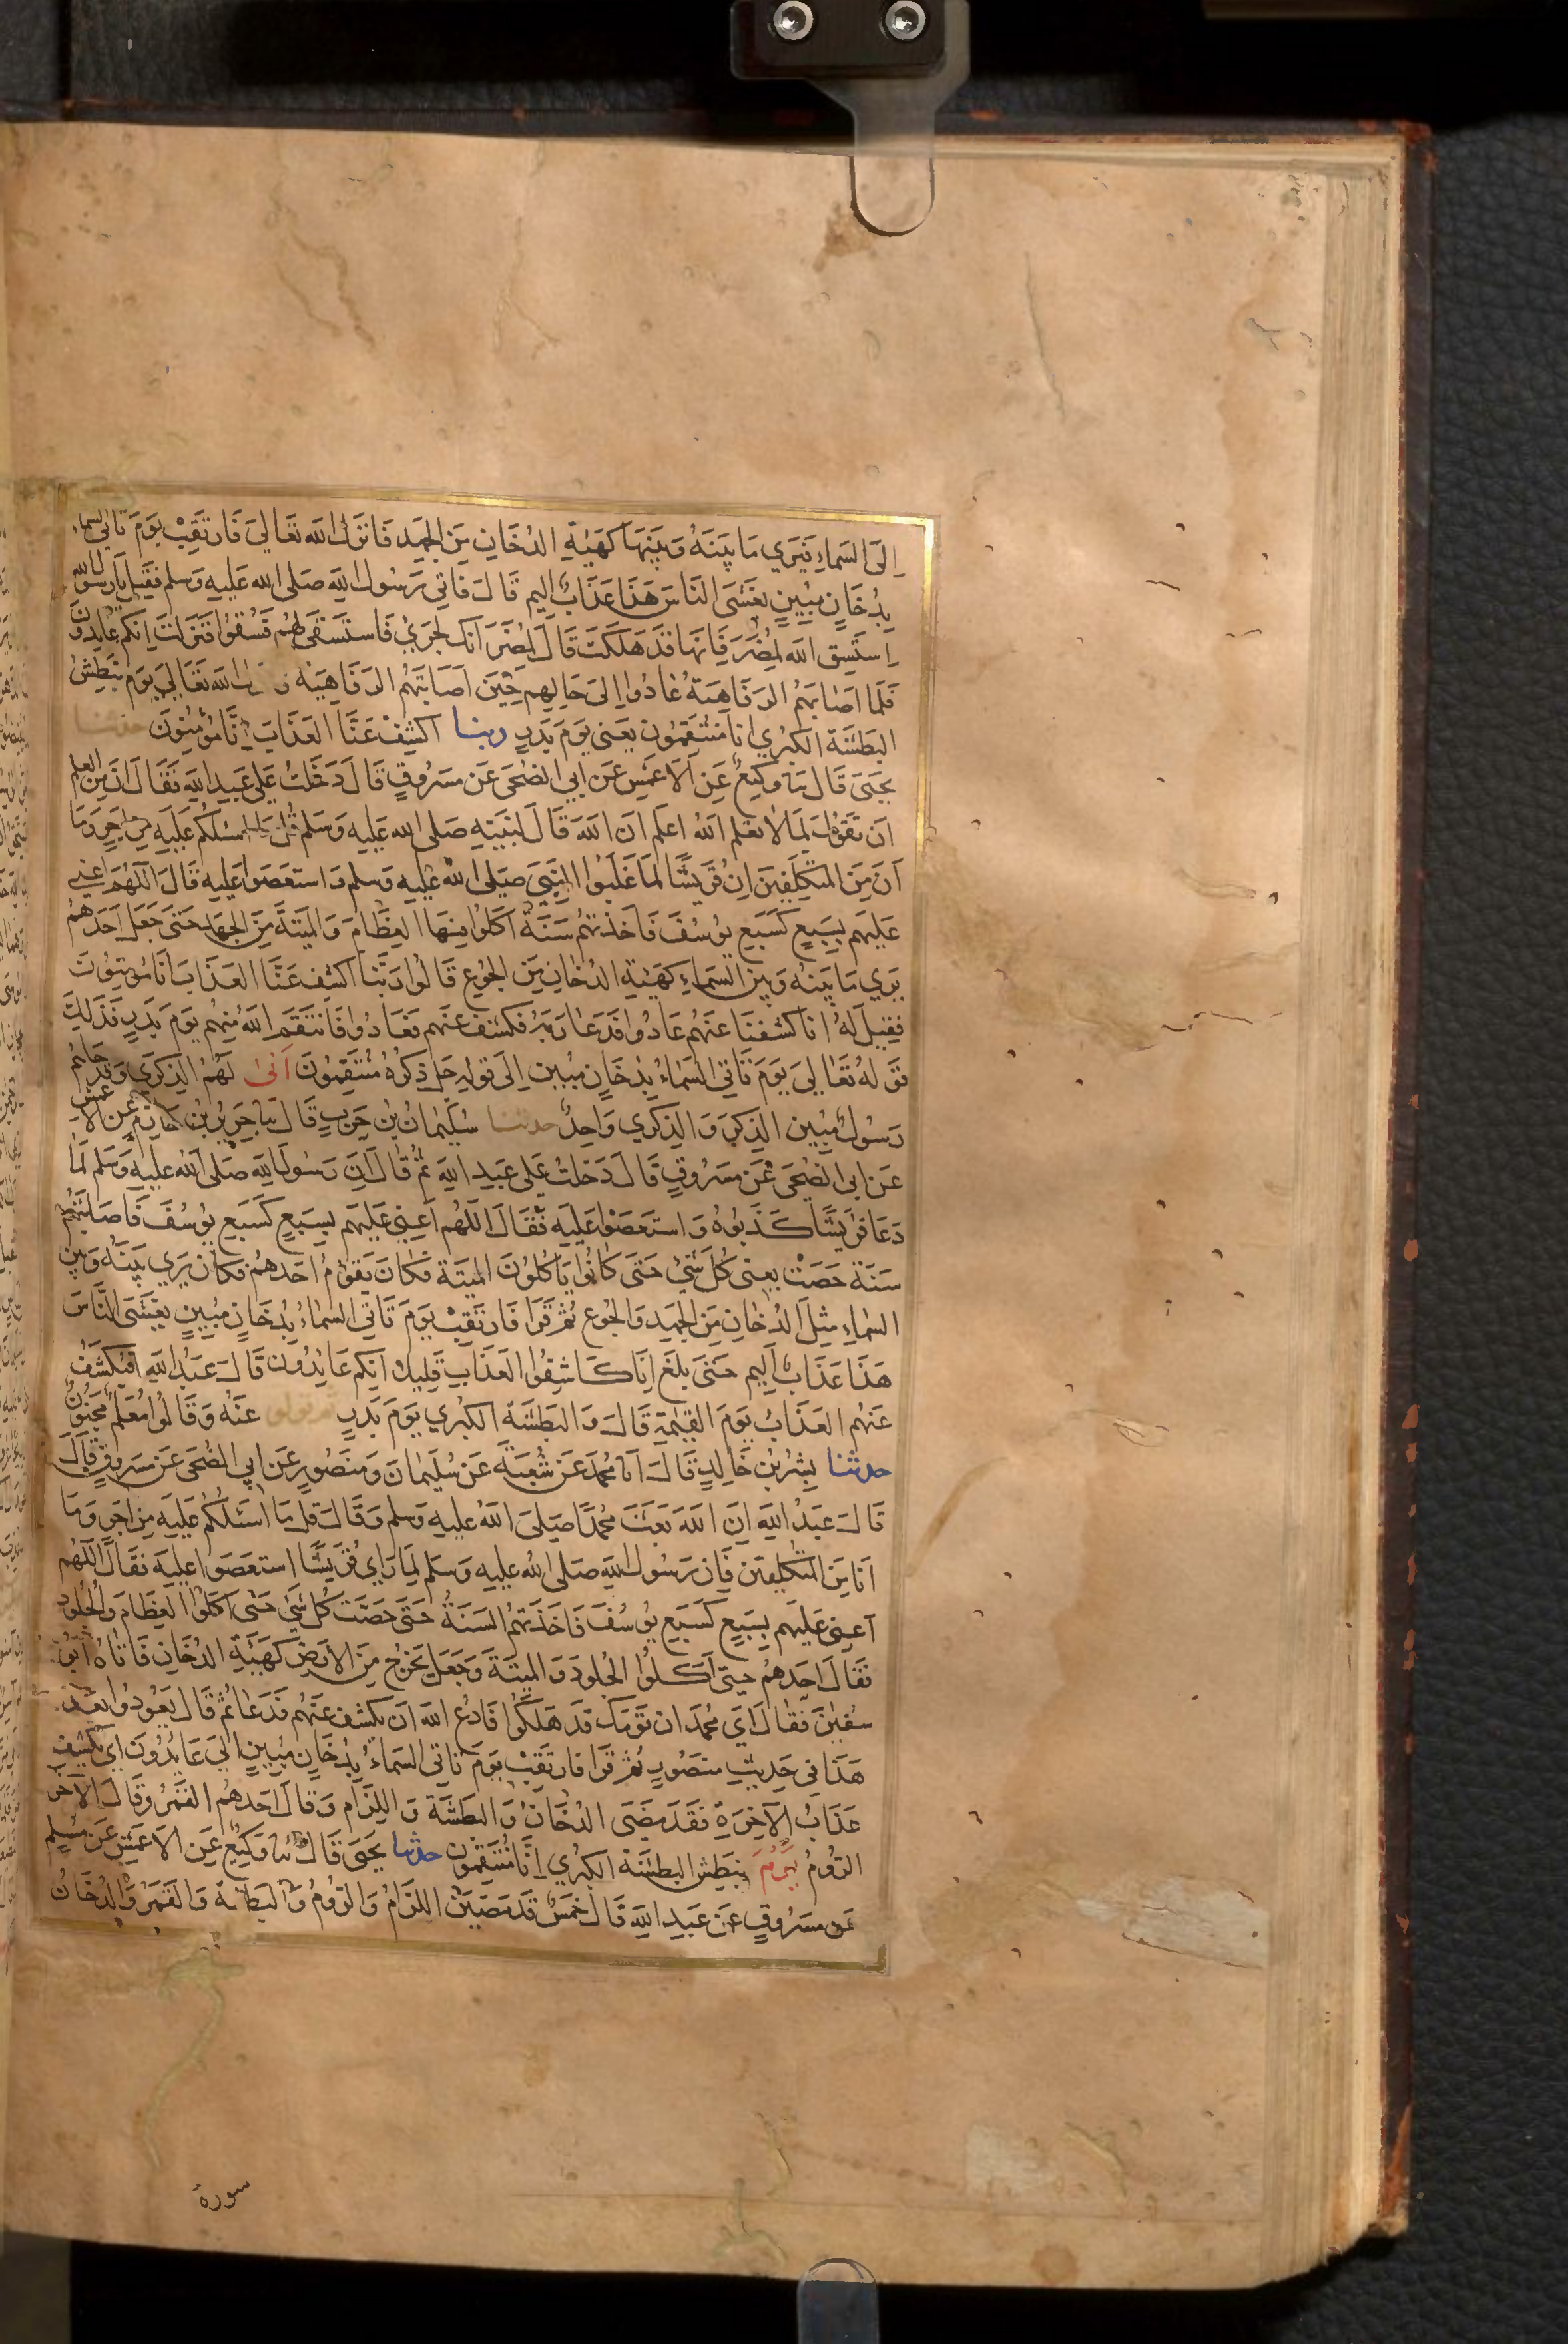 اِلَى السَمَاءِ فَيَرَي مَا بَيْنَهُ وَبَيْنَهَا كَهَيْئَةِ الدُخَانِ مِنَ الجَهدِ فَانزَلَ الله تعَالىَ فَارتَقِبْ يَومَ تَاتي السماء
بِدُخَانٍ مُبِينٍ يَغشَى النَاسَ هَذَا عَذَابٌ اليم قَالَ فاتي رَسُول اللهِ صَلى الله عَليهِ وَسلم فقِيلَ يَارسُول الله
اِستَسقِ الله لمُضَرَ فَاِنهَا قدَ هَلكَت قَالَ لمُضَرَ انك لجَرئٌ فَاستَسقَى لهُم فَسُقُوا فَنزَلتْ اِنكم عَايِدُونَ
فَلمَا اصَابَتهُم الرفَاهِيَةُ عَادُوا اِلىَ حَالِهِم حِينَ اصَابَتهُم الرفَاهِيَة الله تعَالىَ يَومَ نَبطِشُ
البَطشَةَ الكبرَي انا مُنتَقِمُون يعَنى يَومَ بَدرٍ ربنا اكشِفْ عَنَّا العَذَابَ اِنَّا مُؤمِنُونَ حدثنا
يحَيَى قَالَ نا وَكِيعٌ عَنِ الاعمَشِ عَن ابي الضحَى عَن مَسرُوقٍ قَالَ دَخَلتُ عَلى عَبدِ اللهِ فقَالَ اِنَّ مِنَ العِلمِ
ان تَقوُلَ لِمَا لا تعلم اللهُ اعلم ان اللهَ قَالَ لنَبيِهِ صَلى الله عَليهِ وَسَلم قُل مَا اسئلكم عَليهِ مِن اجرٍ وَمَا
اَنَا مِنَ المتكلِفِينَ اِن قُرَيشًا لما غَلَبُوا النَبِيَ صَلى الله عليهِ وسلم وَاستعصَوا عَليهِ قَالَ اللهُم اعِني
عَليهِم بِسَبعٍ كَسَبعِ يوسُفَ فَاخَذتهُم سَنَةٌ اَكَلُوا فِيهَا العِظَامَ وَالمَيتَةَ مِنَ الجَهدِ حَتىَ جَعَل احَدهُم
يرَي مَا بَينَهُ وَبينَ السمَاءِ كهَيئةِ الدُخانِ مِنَ الجُوعِ قَالوا رَبَّنا اكشِف عَنَّا العَذَابَ انَا مُومِنُونَ
فقِيلَ لهُ انا كشفنَا عَنهُم عَادُوا فدَعَا رَبهُ فكشف عَنهم فعَادُوا فَانتَقمَ اللهُ مِنهُم يومَ بَدرٍ فَذلِكَ
قَولهُ تعَالىَ يَومَ تَاتي السَمَاءُ بِدُخَانٍ مُبِين اِلىَ قولِهِ جَل ذِكرُهُ مُنتَقِمُونَ اَنىَّ لهُمُ الذِكرَي وَقدَ جَاءهُم
رَسُولٌ مُبِين الذِكرُ وَالذِكرَي وَاحِدٌ حدثنا سُليمَانُ بن حَربٍ قَالَ نا جَرِيرُ بْنُ حَازِمٍ عَن الاعمش
عَن ابى الضحَى عَن مَسرُوقٍ قَالَ دَخلتُ عَلى عَبدِ اللهِ ثم قَالَ اِنَّ رَسُولَ اللهِ صَلى اللهُ عليهِ وَسَلم لما
دَعَا قرَيشًا كَذبُوهُ وَاستعَصَوا عَليهِ فقَالَ اللهُم اَعِنِي عَليهِم بِسَبعٍ كَسَبعِ يُوسُفَ فَاصَابتهُم
سَنَة حَصَتْ يعني كُل شَئٍ حَتى كَانُوا يَاكلُونَ الميتَة فكَانَ يَقوُمُ احَدهُم فكَانَ يَرَي بَينَهُ وَبَين
السماءِ مِثلَ الدُخانِ مِنَ الجَهدِ وَالجُوعِ ثمُ قَرَا فَارتَقِبْ يَومَ تَاتي السماءُ بِدُخَانٍ مُبِينٍ يغشَى النَّاسَ
هَذَا عَذَابٌ اَلِيم حَتىَ بلغَ اِنَا كَاشِفُوا العَذَابِ قليلا اِنكم عَايدُونَ قَالَ عَبدُ اللهِ افَيكشَفُ
عَنهُم العَذَابُ يومَ القِيمَةِ قَالَ وَالبَطشَة الكبرَي يومَ بَدرٍ ثم تولوا عَنْهُ وَقَالوا مُعَلمٌ مَجنُونٌ
حدثنا بِشرُ بن خَالِدٍ قَالَ انا مُحمَد عَن شُعبَةَ عَن سُليمَانَ وَمنصُورٍ عَن ابي الضُحَى عَن مَسرُوقٍ قَالَ
قَالَ عَبدُ اللهِ اِنَ اللهَ بَعَثَ مُحمدًا صَلىَ اللهُ عليهِ وسلم وَقَالَ قلْ مَا اَسئَلُكُم عَليهِ مِن اجرٍ وَمَا
انَا مِنَ المتكلِفين فَاِن رَسُولَ اللهِ صَلى الله عليهِ وَسَلم لمَا رَاي قُريشًا استعصَوا عليهِ فقَالَ اللهُم
اَعِنِي عَليهِم بِسَبعٍ كَسَبعِ يوسُفَ فَاخَذتهُم السَنَةُ حَتىَ حصَت كُلَ شَيٍ حَتى اكلوا العِظَامَ وَالجُلود
فقَالَ احَدهُم حتى اَكلوا الجُلودَ وَالميتَةَ وَجعَلَ يَخرُج مِنَ الارضِ كهَيئَةِ الدُخَانِ فَاتاهُ ابُو
سُفيٰنَ فقالَ اَي مُحَمد ان قومك قدَ هَلكُوا فَادعُ الله اَن يكشِف عَنهُم فدَعَا ثم قَالَ يعُودوا بعَد
هَذَا في حَدِيثِ مَنصُورٍ ثمُ قرَا فَارتَقِبْ يومَ تاتي السَمَاءُ بِدُخَانٍ مُبِينٍ اِلىَ عَايدُونَ اَيُكشَف
عَذَابُ الآخِرَةِ فقَدَ مَضَى الدُخَانُ وَالبَطشَة وَاللِزَام وَقَالَ احَدهُم القَمَرُ وَقَالَ الآخَر
الرُومُ يَومَ نبَطِش البَطشَةَ الكبرَي اِنَّا مُنتَقِمُون حدثنا يحَيَى قَالَ نا وَكِيعٌ عَنِ الاعمَشِ عَن مُسلِمٍ
عَن مَسرُوقٍ عَن عَبدِ اللهِ قَالَ خَمسٌ قدَ مَضَينَ اللِزَامُ وَالرُومُ وَالبَطشَةُ وَالقمَرُ وَالدُخَانُ
سورة